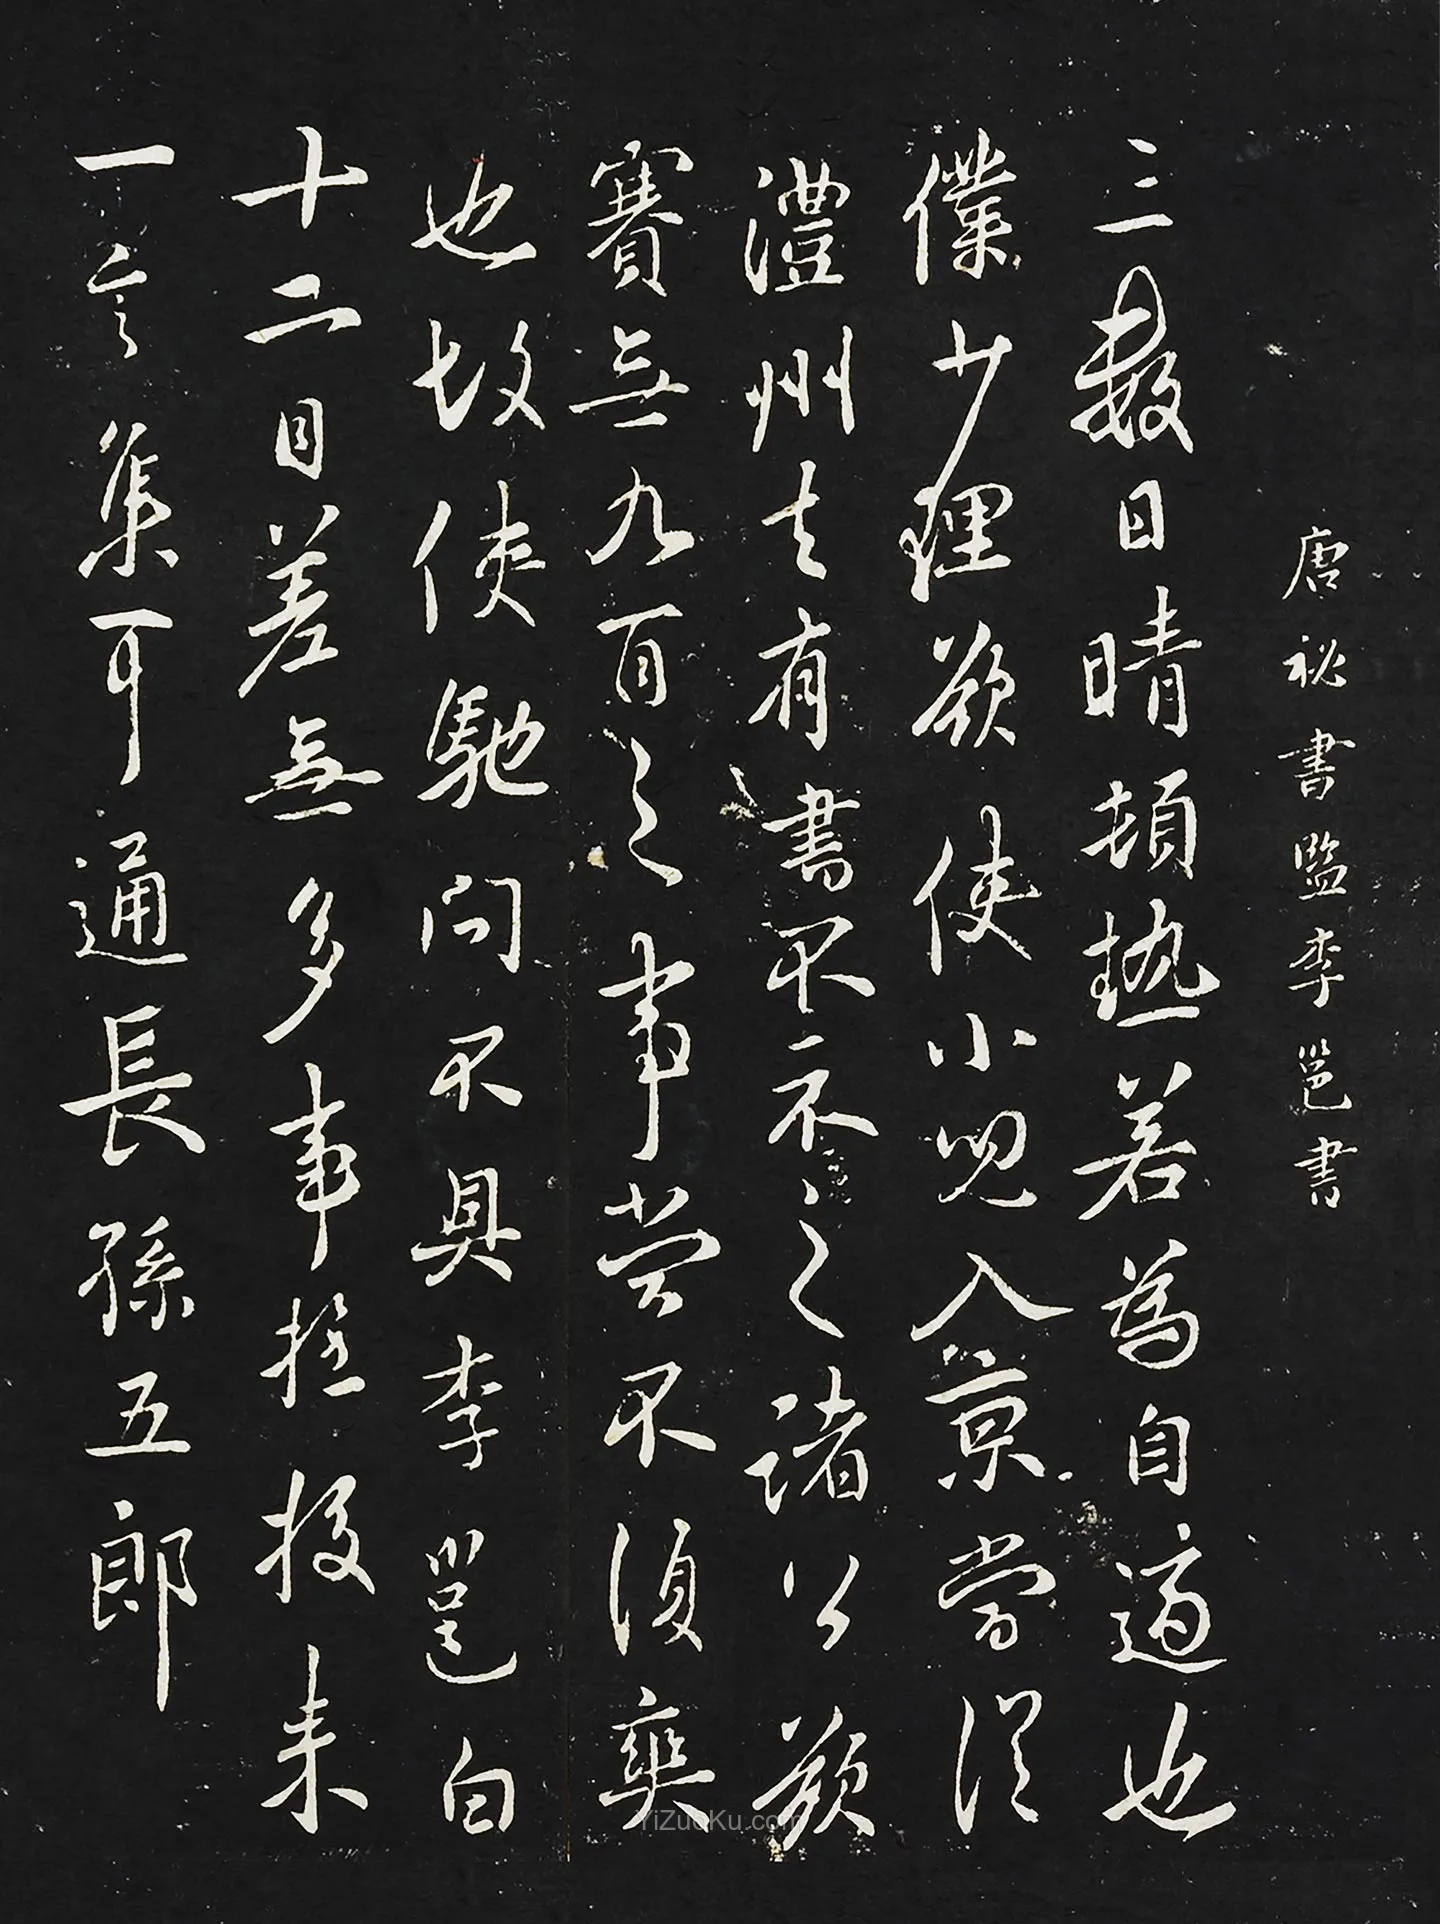 唐祕書監李邕書
三數日晴頓熱若為自適也
僕少理欲使小兒入京當從
澧州去有書不示之諸公欲
賽無九百之事嘗不須奕
也故使馳問不具李邕白
十二日差無多事於投來
一言集可通長孫五郎
YiZuoKu.com